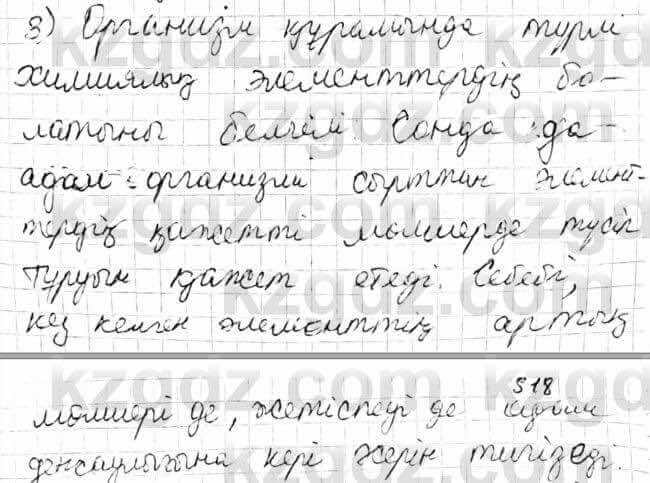 3) Организм құрамында түрлі
химиялық элементтердің бо-
латыны белгілі. Сонда да
адам организмі сырттан элемент-
тердің қажетті мөлшерде түсіп
тұруын қажет етеді. Себебі,
кез келген элементтің артық
318
мөлшері де, жетіспеуі де адам
денсаулығына кері әсерін тигізеді.
kzgdz.com